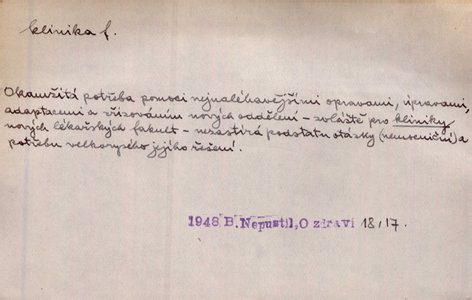 klinika f.
Okamžitá potřeba pomoci nejnaléhavějšími opravami, úpravami,
adaptacemi a zřizováním nových oddělení – zvláště pro kliniky
nových lékařských fakult – nezastírá podstatu otázky (nemocniční) a
potřebu velkorysého jejího řešení.
1948 B. Nepustil, O zdraví 18/17.